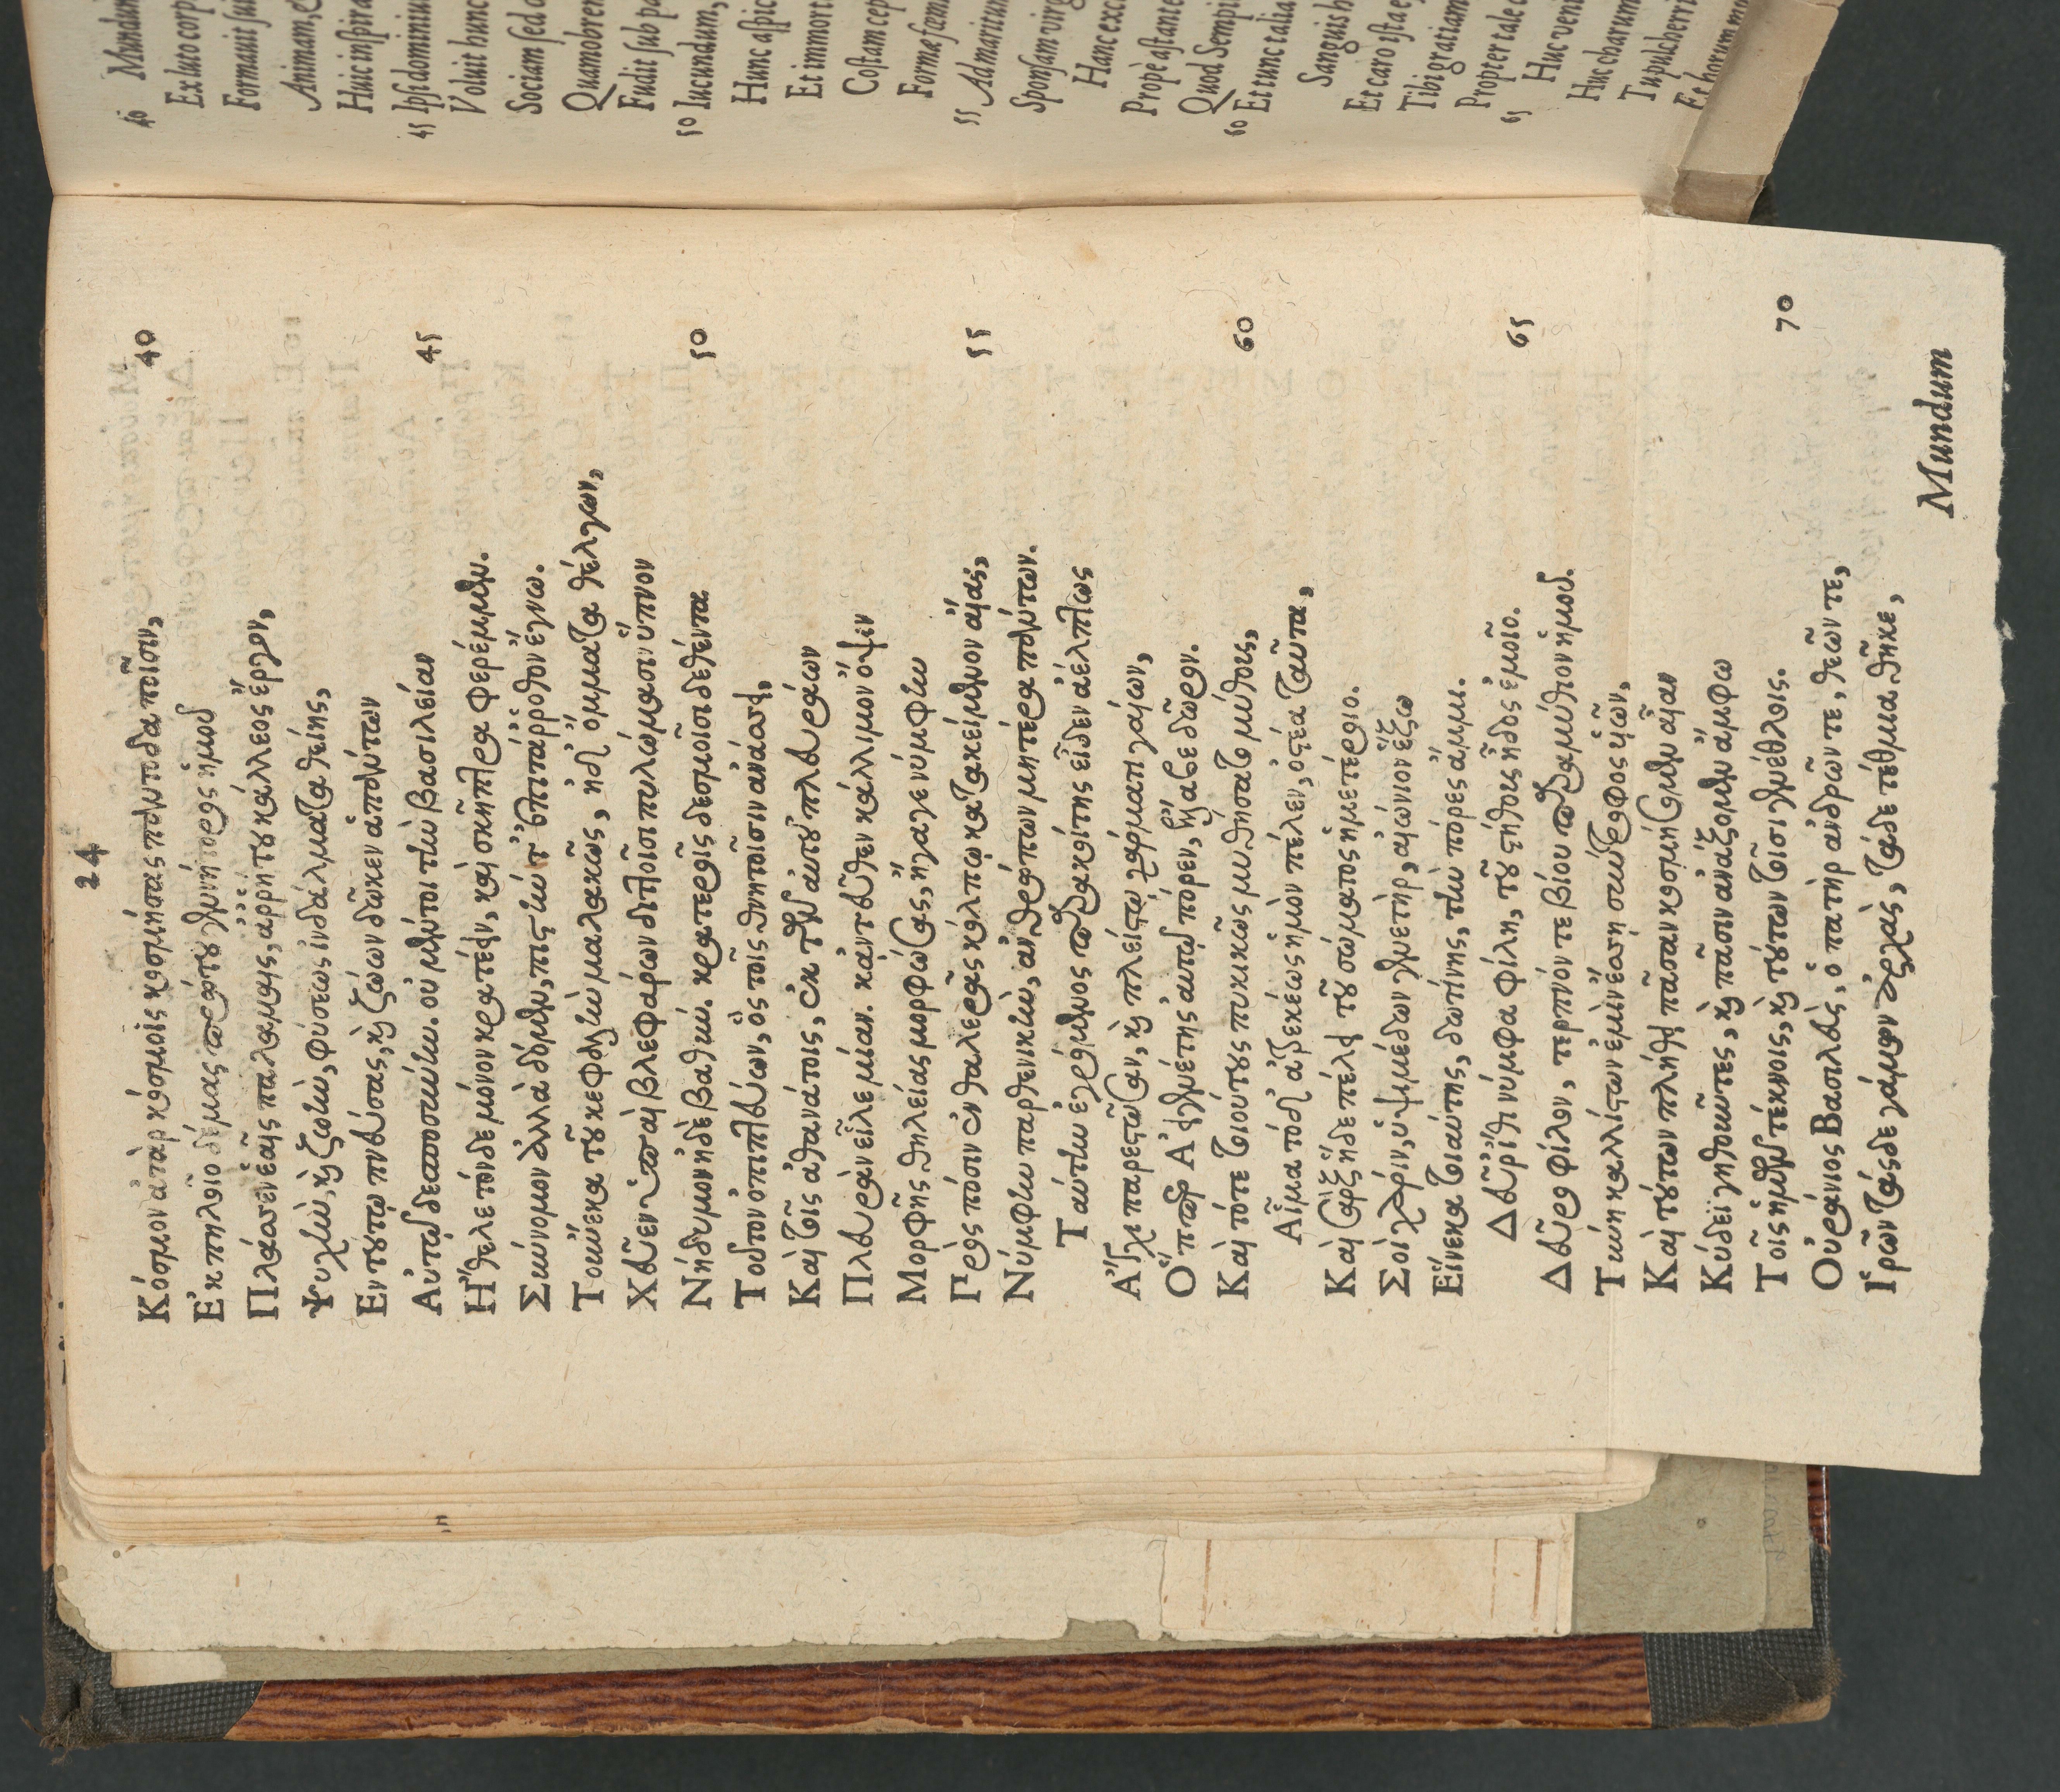 24
Κόσμον ἀτὰρ κόσμοις κοσμήσας πολυποδαποῖσιν, 40
Ἐκ πηλοῖο δέμας πρώτου γενήτορος ἡμοῦ
Πλάσσεν ἑαῖς παλάμαις, ἀῤῥήτου κάλλεος ἔργον,
Ψυχὴν, καὶ ζωὴν, φύσεως ἰνδάλματα θείης,
Ἐν τούτῳ πνεύσας, καὶ ζώων δῶκεν ἁπάντων
Αὐτῷ δεσποσύνην. οὐ μέντοι τὴν βασιλείαν 45
Ἤθελε τόνδε μόνον κρατέειν, καὶ σκῆπτρα φερέμμεν.
Σύννομον ἀλλὰ δόμεν, πιστήν τ' ἐπιτάῤῥοθον ἔγνω.
Τοὔνεκα τοῦ κεφαλὴν μαλακῶς, ἠδ' ὄμματα θέλγων,
Χεῦεν ὑπαὶ βλεφάρων διπλοῖσι πυλώμασιν ὕπνον
Νήδυμον ἠδὲ βαθύν. κρατεροῖς δεσμοῖσι δεθέντα 50
Τοῦτον ὀπιπτεύων, ὃς τοῖς θνητοῖσιν ἀνάσσει,
Καὶ τοῖς ἀθανάτοις, ἐκ τῶν αὐτοῦ πλευράων
Πλευρὰν εἷλε μίαν. κἀντεῦθεν κάλλιμον ὄψιν
Μορφῆς θηλείας μορφώσας, ἤγαγε νύμφην
Πρὸς πόσιν ἐν θαλερᾶς κόλπῳ κατακείμενον αἴας, 55
Νύμφην παρθενικὴν, ἀνθρώπων μητέρα πάντων.
Ταύτην ἐγρόμενος παρακοίτης εἶδεν ἀέλπτως
Ἄγχι παρεστῶσαν, καὶ πλείστῳ χάρματι γαίων,
Ὅππερ Ἀειγενέτης αὐτῷ πόρεν, ἤγασε δῶρον.
Καὶ τότε τοιούτους πυκινῶς μυθήσατο μύθοις, 60
Αἷμα τόδ' ἀτρεκέως ἡμὸν πέλεν, ὀστέα ταῦτα,
Καὶ σὰρξ ἥδε πέλει τοῦ σώματος ἡμετέροιο.
Σοὶ χάριν, ὑψιμμέδων γενετὴρ, αἰώνιον ἕξω
Εἵνεκα τοιαύτης, δωτίνης, τὴν πόρες ἄμμι.
Δεῦρ' ἴθι νύμφα φίλη, τοῦ στήθους ἦδος ἐμοῖο. 65
Δεῦρο φίλον, τερπνόν τε βίου παραμύθιον ἡμοῦ.
Τύνη καλλίστων ἐμὶν ἔσση σύντροφος ἡμῶν,
Καὶ τούτων πλήθει πᾶσαν κοσμήσομεν αἶαν
Κύδεϊ γηθοῦντες, καὶ πᾶσιν ἀνάξομεν ἄμφω
Τοῖς ἡμῶν τέκνοις, καὶ τούτων τοῖσι γενέθλοις. 70
Οὐράνιος Βασιλεὺς, ὁ πατὴρ ἀνδρῶν τε, θεῶν τε,
Ἱρῶν τάςδε γάμων ἀρχὰς, τάδε τέθμια θῆκε,
Mundum
40 Mundum
Ex luto corp
Formauit sui
Animam, &
Huic inspira
45 Ipsi dominiu
Voluit hunc
Sociam sed d
Quamobrem
Fudit sub pa
50 Iucundum,
Hunc aspic
Et immort
Costam cep
Formæ fœmi
55 Ad maritum
Sponsam virg
Hanc exc
Propè astante
Quod Sempi
60 Et tunc talia
Sanguis h
Et caro ista e
Tibi gratiam
Propter tale
65 Huc veni
Huc charum
Tu pulcherri
Et horum mu